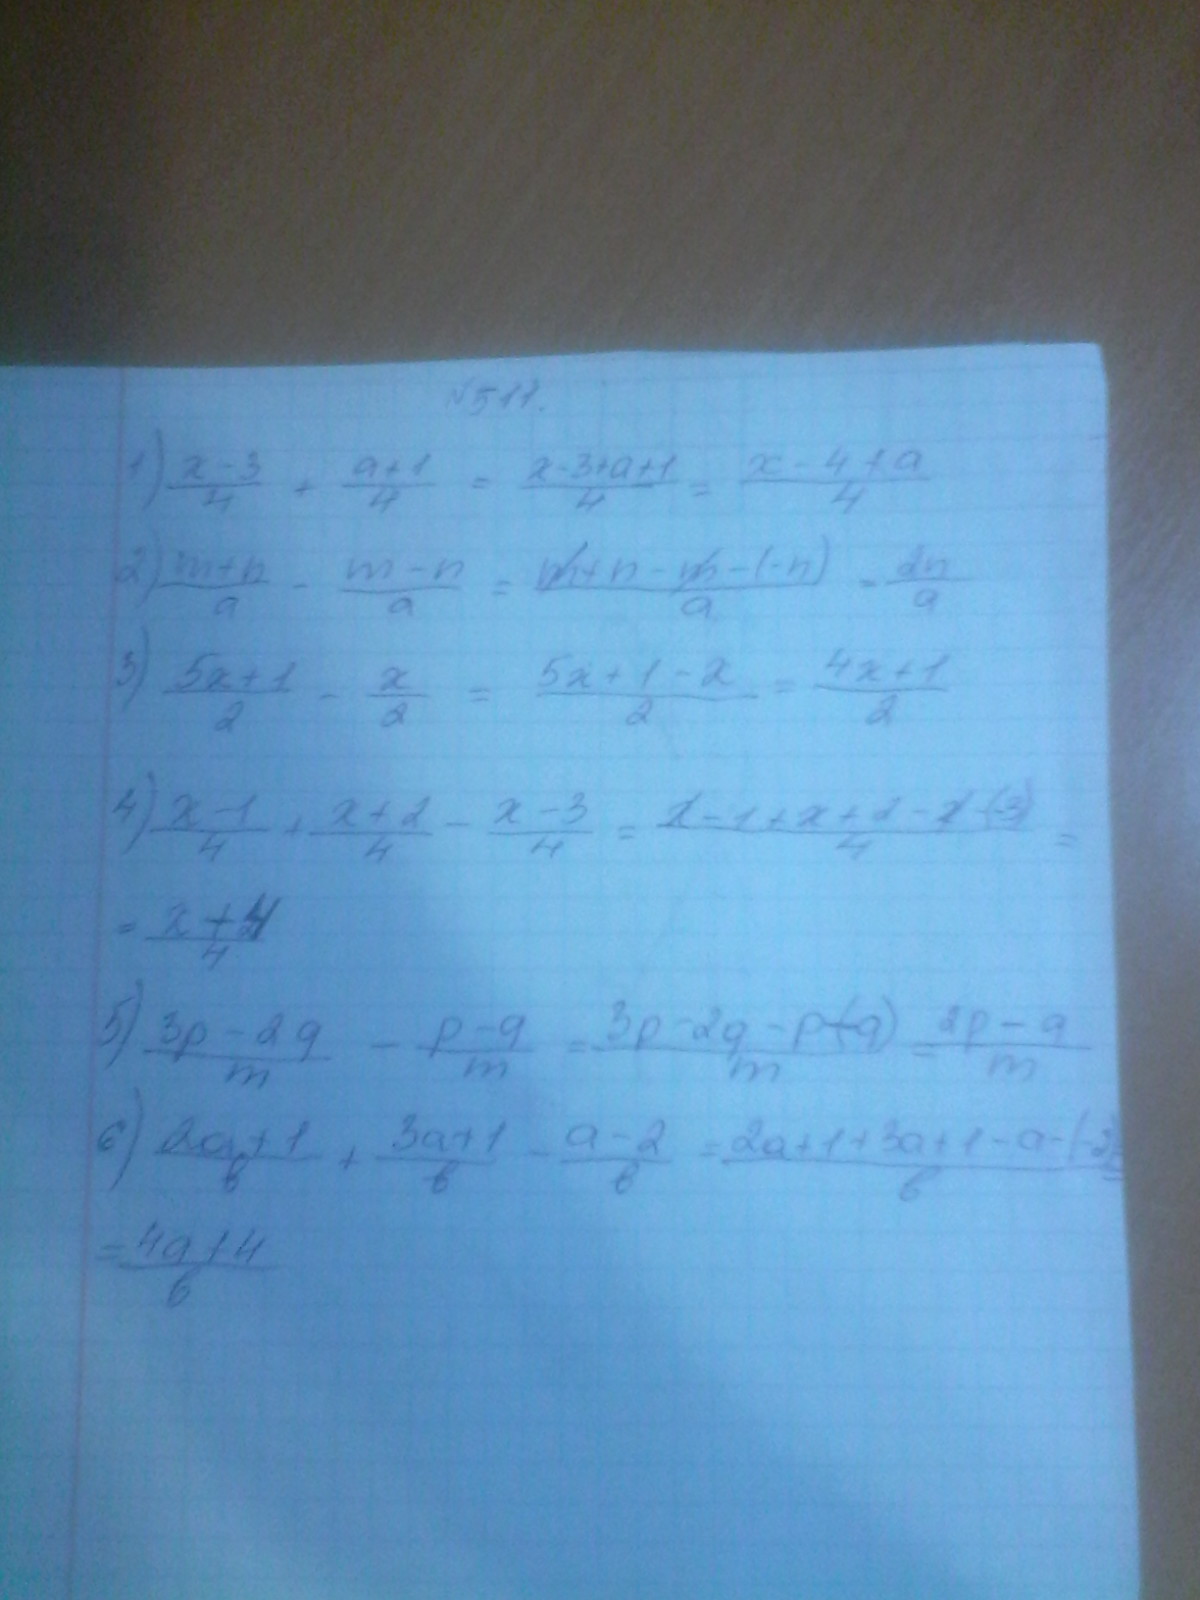 №511.
1) x-3/4 + a+1/4 = x-3+a+1/4 = x-4+a/4
2) m+n/a - m-n/a = m+n-m-(-n)/a = 2n/a
3) 5x+1/2 - x/2 = 5x+1-x/2 = 4x+1/2
4) x-1/4 + x+2/4 - x-3/4 = x-1+x+2-x-(-3)/4 =
= x+4/4
5) 3p-2q/m - p-q/m = 3p-2q-p-(-q)/m = 2p-q/m
6) 2a+1/b + 3a+1/b - a-2/b = 2a+1+3a+1-a-(-2)/b =
= 4a+4/b